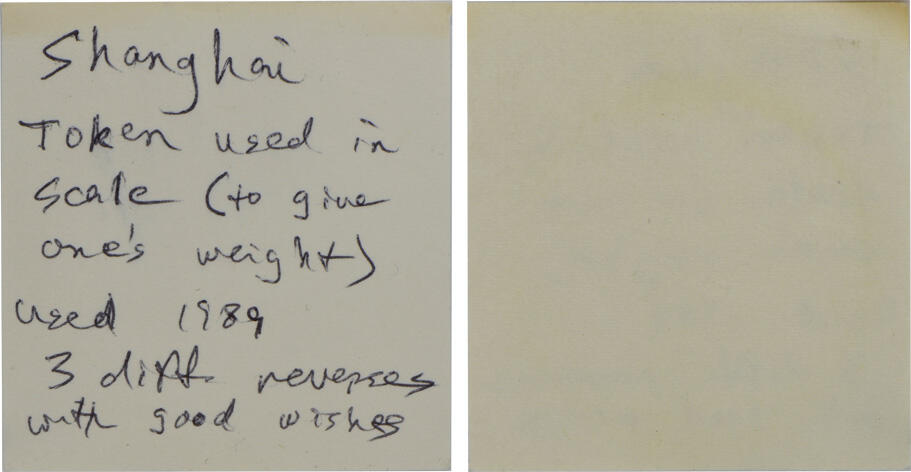 Shanghai
Token used in
scale (to give
one's weight)
used 1989
3 diff. reverses
with good wishes